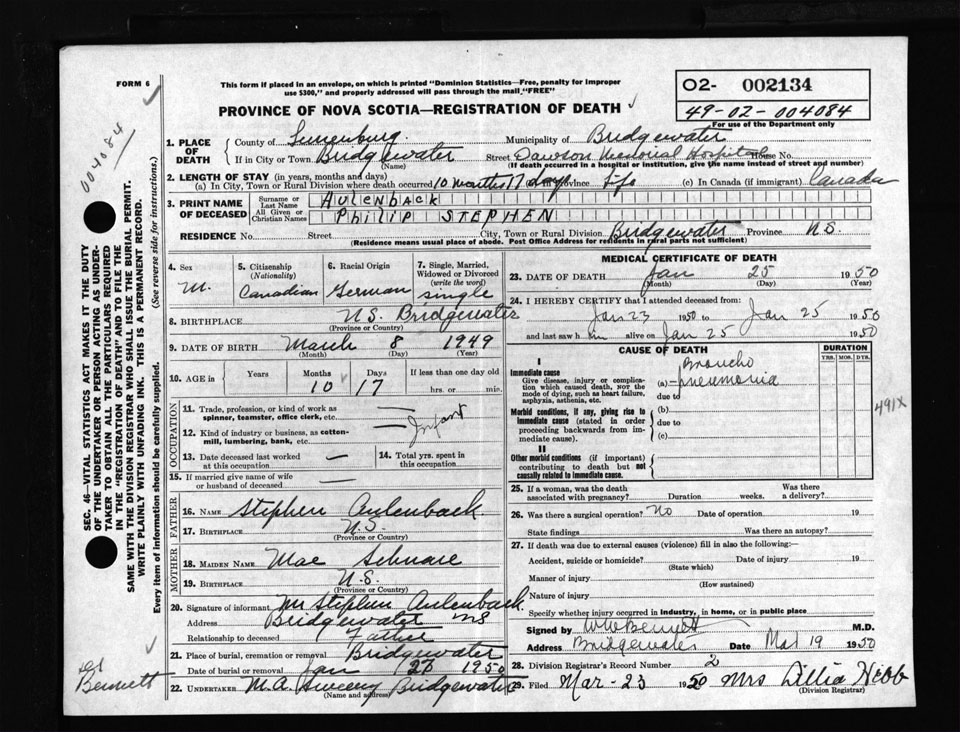 FORM 6
This form if placed in an envelope, on which is printed "Dominion Statistics—Free, penalty for improper
use $300," and properly addressed will pass through the mail "FREE"
PROVINCE OF NOVA SCOTIA—REGISTRATION OF DEATH
02- 002134
49-02-004084
For use of the Department only
004084
SEC. 46—VITAL STATISTICS ACT MAKES IT THE DUTY
OF THE UNDERTAKER OR PERSON ACTING AS UNDER-
TAKER TO OBTAIN ALL THE PARTICULARS REQUIRED
IN THE "REGISTRATION OF DEATH" AND TO FILE THE
SAME WITH THE DIVISION REGISTRAR WHO SHALL ISSUE THE BURIAL PERMIT.
WRITE PLAINLY WITH UNFADING INK. THIS IS A PERMANENT RECORD.
Every item of information should be carefully supplied. (See reverse side for instructions.)
1. PLACE OF DEATH
County of Lunenburg Municipality of Bridgewater
If in City or Town Bridgewater Street Dawson Memorial Hospital House No.
(Name) (If death occurred in a hospital or institution, give the name instead of street and number)
2. LENGTH OF STAY (in years, months and days)
(a) In City, Town or Rural Division where death occurred 10 months 17 days Province life (c) In Canada (if immigrant) Canada
3. PRINT NAME OF DECEASED
Surname or Last Name Aulenback
All Given or Christian Names Philip STEPHEN
RESIDENCE No. Street City, Town or Rural Division Bridgewater Province N.S.
(Residence means usual place of abode. Post Office Address for residents in rural parts not sufficient)
4. Sex M.
5. Citizenship (Nationality) Canadian
6. Racial Origin German
7. Single, Married, Widowed or Divorced (write the word) single
8. BIRTHPLACE N.S. Bridgewater
(Province or Country)
9. DATE OF BIRTH March 8 1949
(Month) (Day) (Year)
10. AGE in Years Months 10 Days 17 If less than one day old hrs. or min.
OCCUPATION
11. Trade, profession, or kind of work as spinner, teamster, office clerk, etc. —
12. Kind of industry or business, as cotton-mill, lumbering, bank, etc. — Infant
13. Date deceased last worked at this occupation —
14. Total yrs. spent in this occupation
15. If married give name of wife or husband of deceased
FATHER
16. NAME Stephen Aulenback
17. BIRTHPLACE N.S.
(Province or Country)
MOTHER
18. MAIDEN NAME Mae Schnare
19. BIRTHPLACE N.S.
(Province or Country)
20. Signature of informant Mr Stephen Aulenback
Address Bridgewater NS
Relationship to deceased Father
21. Place of burial, cremation or removal Bridgewater
Date of burial or removal Jan 26 1950
22. UNDERTAKER M.A. Sweeny Bridgewater
(Name and address)
Dr Bennett
MEDICAL CERTIFICATE OF DEATH
23. DATE OF DEATH Jan 25 1950
(Month) (Day) (Year)
24. I HEREBY CERTIFY that I attended deceased from:
Jan 23 1950 to Jan 25 1950
and last saw him alive on Jan 25 1950
CAUSE OF DEATH
DURATION
YRS. MOS. DYS.
I
Immediate cause
Give disease, injury or complication which caused death, NOT the mode of dying, such as heart failure, asphyxia, asthenia, etc.
(a) Broncho pneumonia
due to
491X
Morbid conditions, if any, giving rise to immediate cause (stated in order proceeding backwards from immediate cause).
(b)
due to
(c)
II
Other morbid conditions (if important) contributing to death but not causally related to immediate cause.
25. If a woman, was the death associated with pregnancy? Duration weeks. Was there a delivery?
26. Was there a surgical operation? No Date of operation 19
State findings Was there an autopsy?
27. If death was due to external causes (violence) fill in also the following:—
Accident, suicide or homicide? Date of injury 19
(State which)
Manner of injury
(How sustained)
Nature of injury
Specify whether injury occurred in industry, in home, or in public place
Signed by W W Bennett M.D.
Address Bridgewater Date Mar 19 1950
28. Division Registrar's Record Number 2
29. Filed Mar-23 1950 Mrs Lillia Hebb
(Division Registrar)